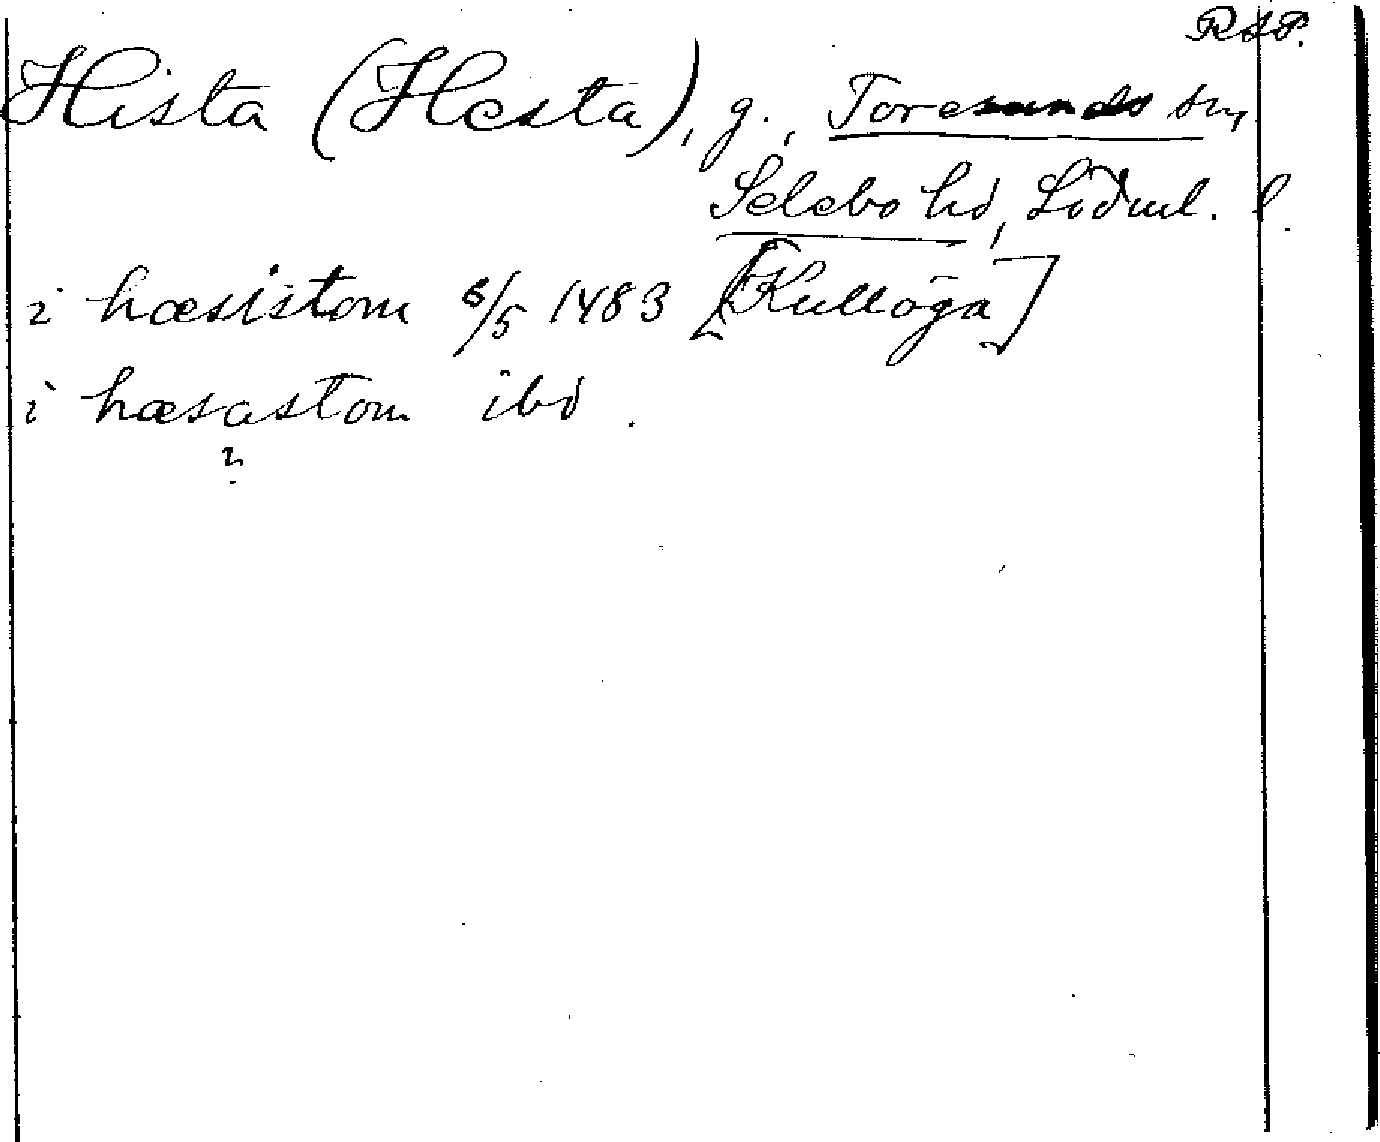 RAP.
Hista (Hesta), g., Toresunds sn,
Selebo hd, Södml. l.
i hæsistom 6/5 1483 [Kullöga]
i hæsastom ibd.
?